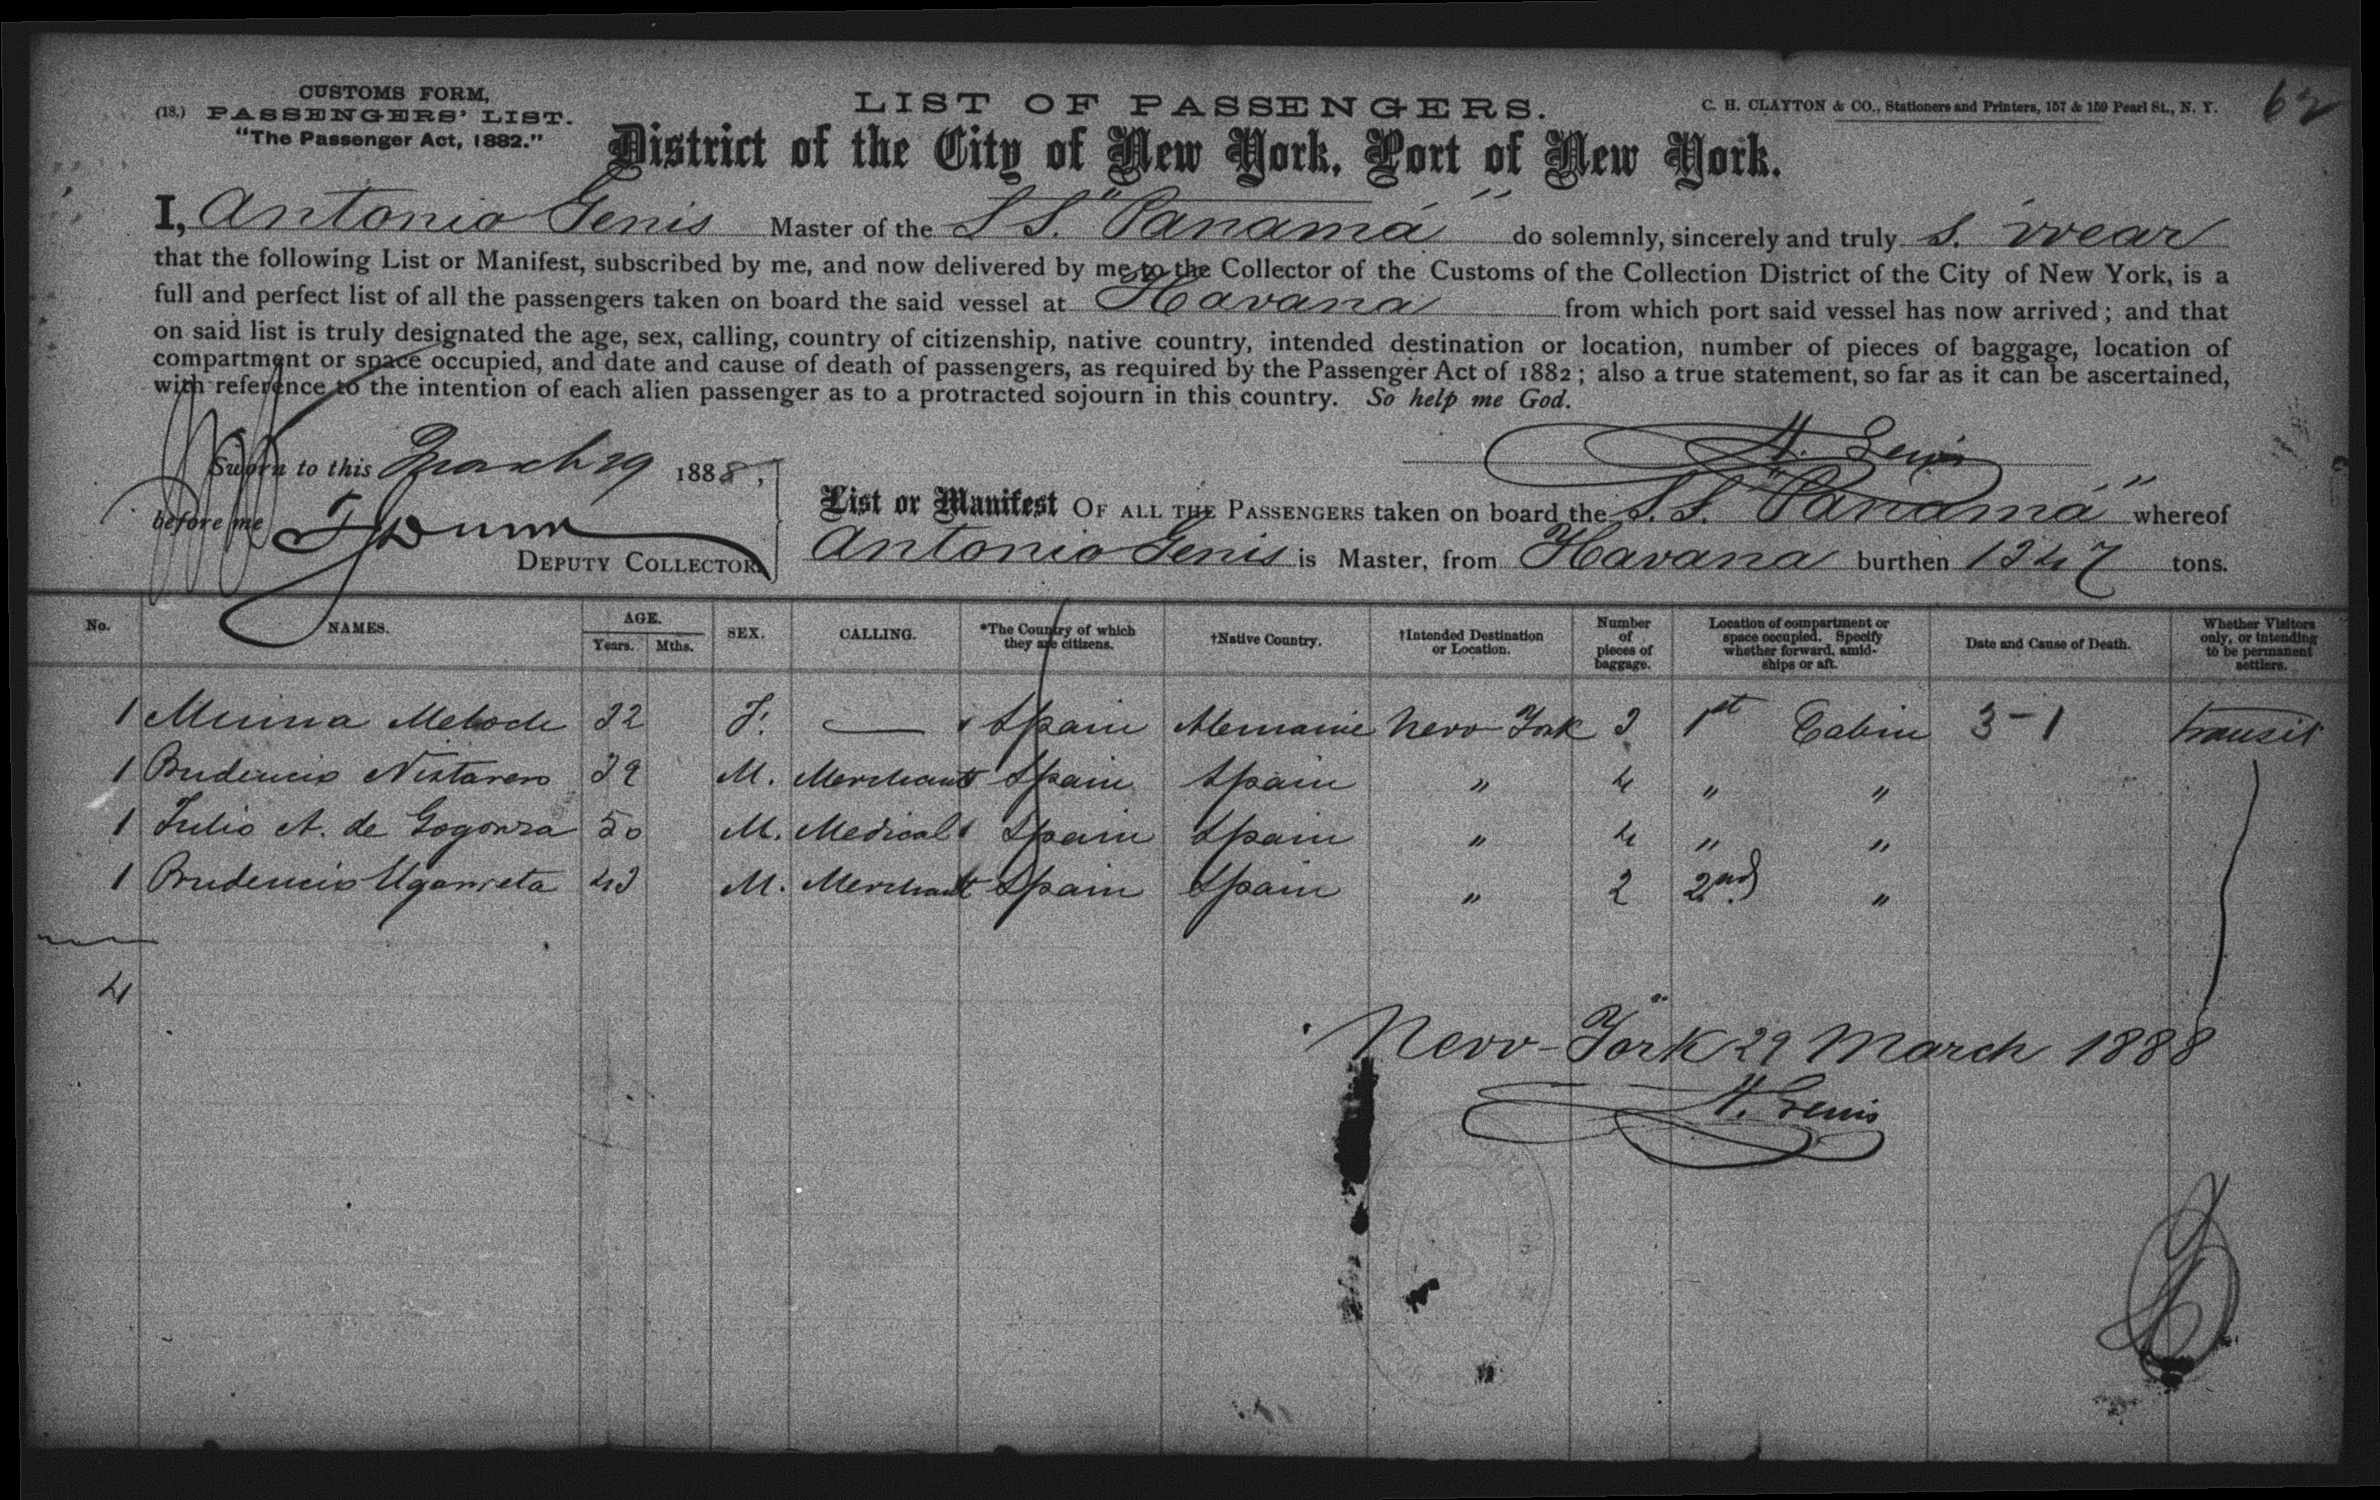 62
CUSTOMS FORM,
(18.) PASSENGERS' LIST.
"The Passenger Act, 1882."
LIST OF PASSENGERS.
C. H. CLAYTON & CO., Stationers and Printers, 157 & 159 Pearl St., N. Y.
District of the City of New York, Port of New York.
I, Antonio Genis Master of the S S. "Panamá" do solemnly, sincerely and truly s. wear
that the following List or Manifest, subscribed by me, and now delivered by me to the Collector of the Customs of the Collection District of the City of New York, is a
full and perfect list of all the passengers taken on board the said vessel at Havana from which port said vessel has now arrived; and that
on said list is truly designated the age, sex, calling, country of citizenship, native country, intended destination or location, number of pieces of baggage, location of
compartment or space occupied, and date and cause of death of passengers, as required by the Passenger Act of 1882; also a true statement, so far as it can be ascertained,
with reference to the intention of each alien passenger as to a protracted sojourn in this country. So help me God.
A. Genis
Sworn to this March 29 1888,
before me
DEPUTY COLLECTOR.
List or Manifest OF ALL THE PASSENGERS taken on board the S. S. "Panamá" whereof
Antonio Genis is Master, from Havana burthen 1247 tons.
No. NAMES. AGE. Years. Mths. SEX. CALLING. *The Country of which they are citizens. †Native Country. †Intended Destination or Location. Number of pieces of baggage. Location of compartment or space occupied. Specify whether forward, amidships or aft. Date and Cause of Death. Whether Visitors only, or intending to be permanent settlers.
1 Minna F. — Spain Alemanie New York 1st Cabin 3-1 transit
1 Prudencio M. Merchant Spain Spain " 4 " "
1 Julio A. de Gogorza 50 M. Medical Spain Spain " 4 " "
1 Prudencio Ugarreta M. Merchant Spain Spain " 2 2nd "
4
New-York 29 March 1888
A. Genis